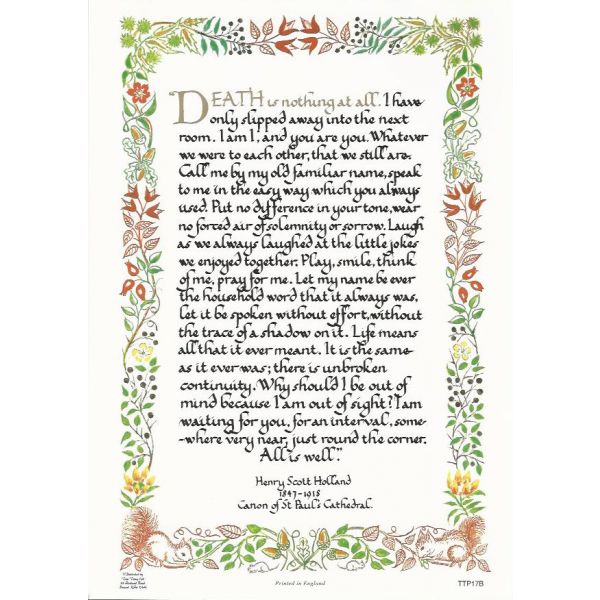 "DEATH is nothing at all. I have
only slipped away into the next
room. I am I, and you are you. Whatever
we were to each other, that we still are.
Call me by my old familiar name, speak
to me in the easy way which you always
used. Put no difference in your tone, wear
no forced air of solemnity or sorrow. Laugh
as we always laughed at the little jokes
we enjoyed together. Play, smile, think
of me, pray for me. Let my name be ever
the household word that it always was,
let it be spoken without effort, without
the trace of a shadow on it. Life means
all that it ever meant. It is the same
as it ever was; there is unbroken
continuity. Why should I be out of
mind because I am out of sight? I am
waiting for you, for an interval, some-
-where very near, just round the corner.
All is well."
Henry Scott Holland
1847-1918
Canon of St Paul's Cathedral.
Printed in England
TTP17B